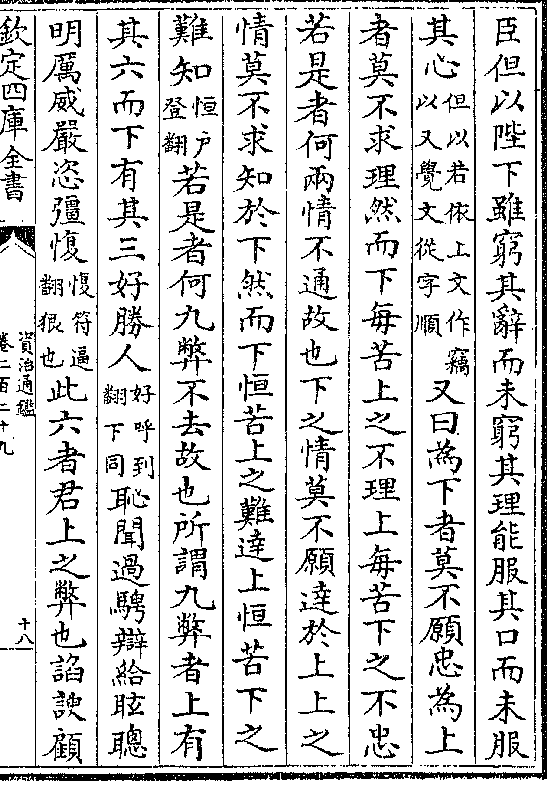 臣但以陛下雖窮其辭而未窮其理能服其口而未服
其心但以若依上文作竊以又覺文從字順又曰為下者莫不願忠為上
者莫不求理然而下每苦上之不理上每苦下之不忠
若是者何兩情不通故也下之情莫不願達於上上之
情莫不求知於下然而下恒苦上之難達上恒苦下之
難知恒户登翻若是者何九弊不去故也所謂九弊者上有
其六而下有其三好勝人好呼到翻下同恥聞過騁辯給眩聰
明厲威嚴恣彊愎愎符逼翻狠也此六者君上之弊也諂諛顧
欽定四庫全書
資治通鑑
卷二百二十九
十八